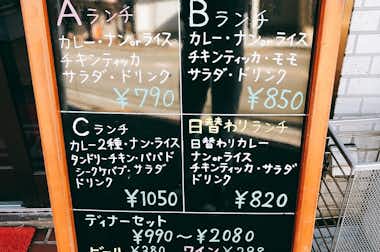 Aランチ
カレー・ナンorライス
チキンティッカ
サラダ・ドリンク
¥790
Bランチ
カレー・ナンorライス
チキンティッカ・モモ
サラダ・ドリンク
¥850
Cランチ
カレー2種・ナン・ライス
タンドリーチキン・パパド
シークケバブ・サラダ
ドリンク
¥1050
日替わりランチ
日替わりカレー
ナンorライス
チキンティッカ・サラダ
ドリンク
¥820
ディナーセット
¥990〜¥2080
ビール ¥380 ワイン ¥298